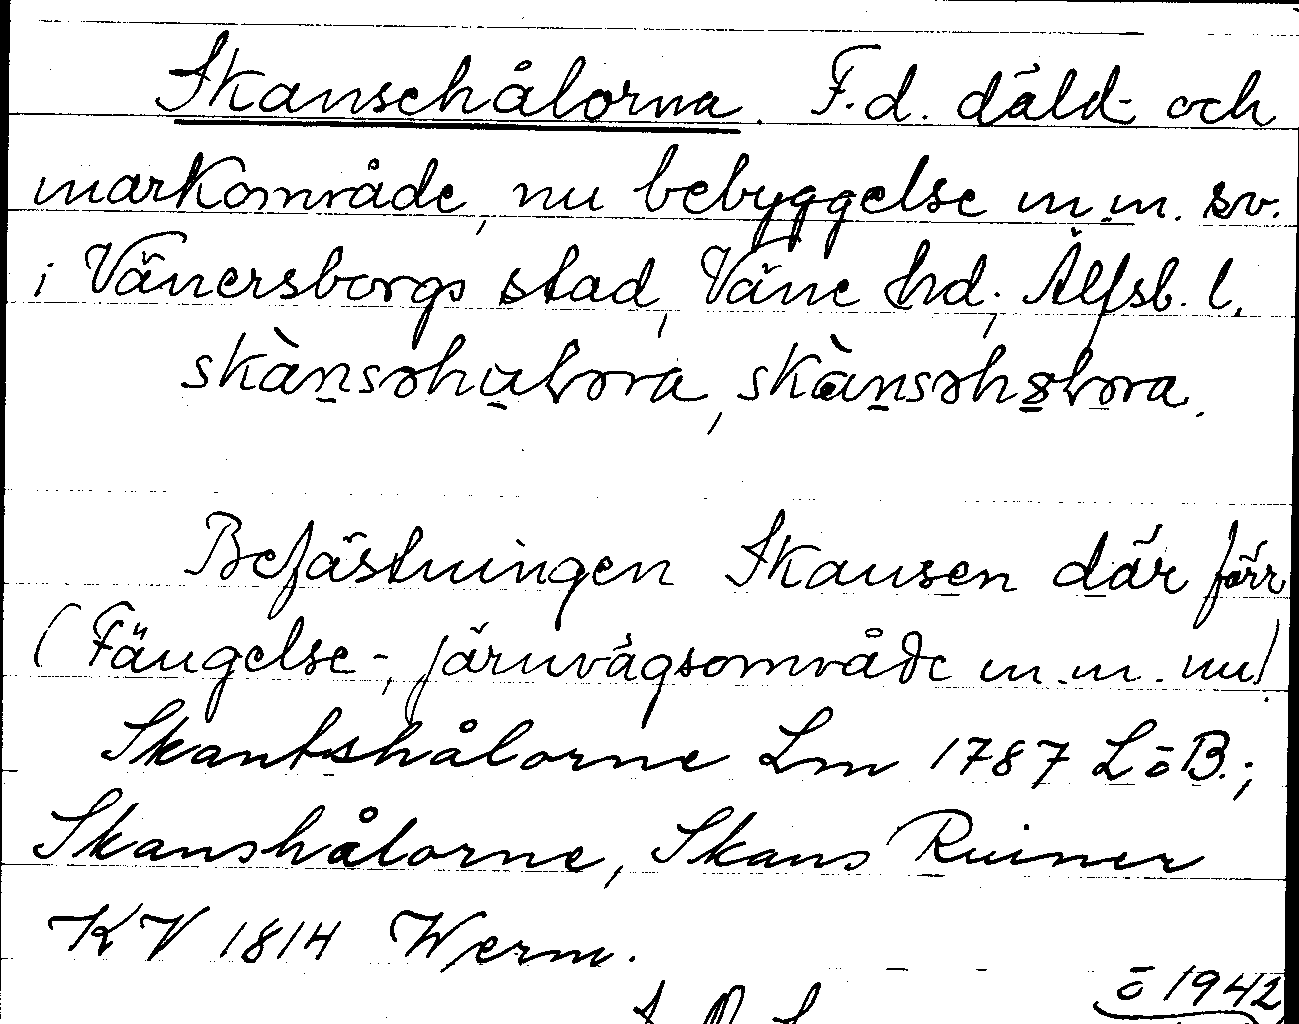 Skansehålorna. F.d. däld- och
markområde, nu bebyggelse m.m. sv.
i Vänersborgs stad, Väne hd, Älfsb. l.
skànsəhulora, skànsəhålora.
Befästningen Skansen där förr
(Fängelse-, järnvägsområde m.m. nu).
Skantshålorne Lm 1787 LöB.;
Skanshålorne, Skans Ruiner
KV 1814 Werm.
ö 1942